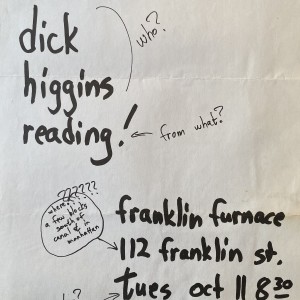 dick
who?
higgins
reading!
from what?
??????
where?
a few blocks
south of
canal & in
manhattan
franklin furnace
112 franklin st.
tues oct 11 8 30